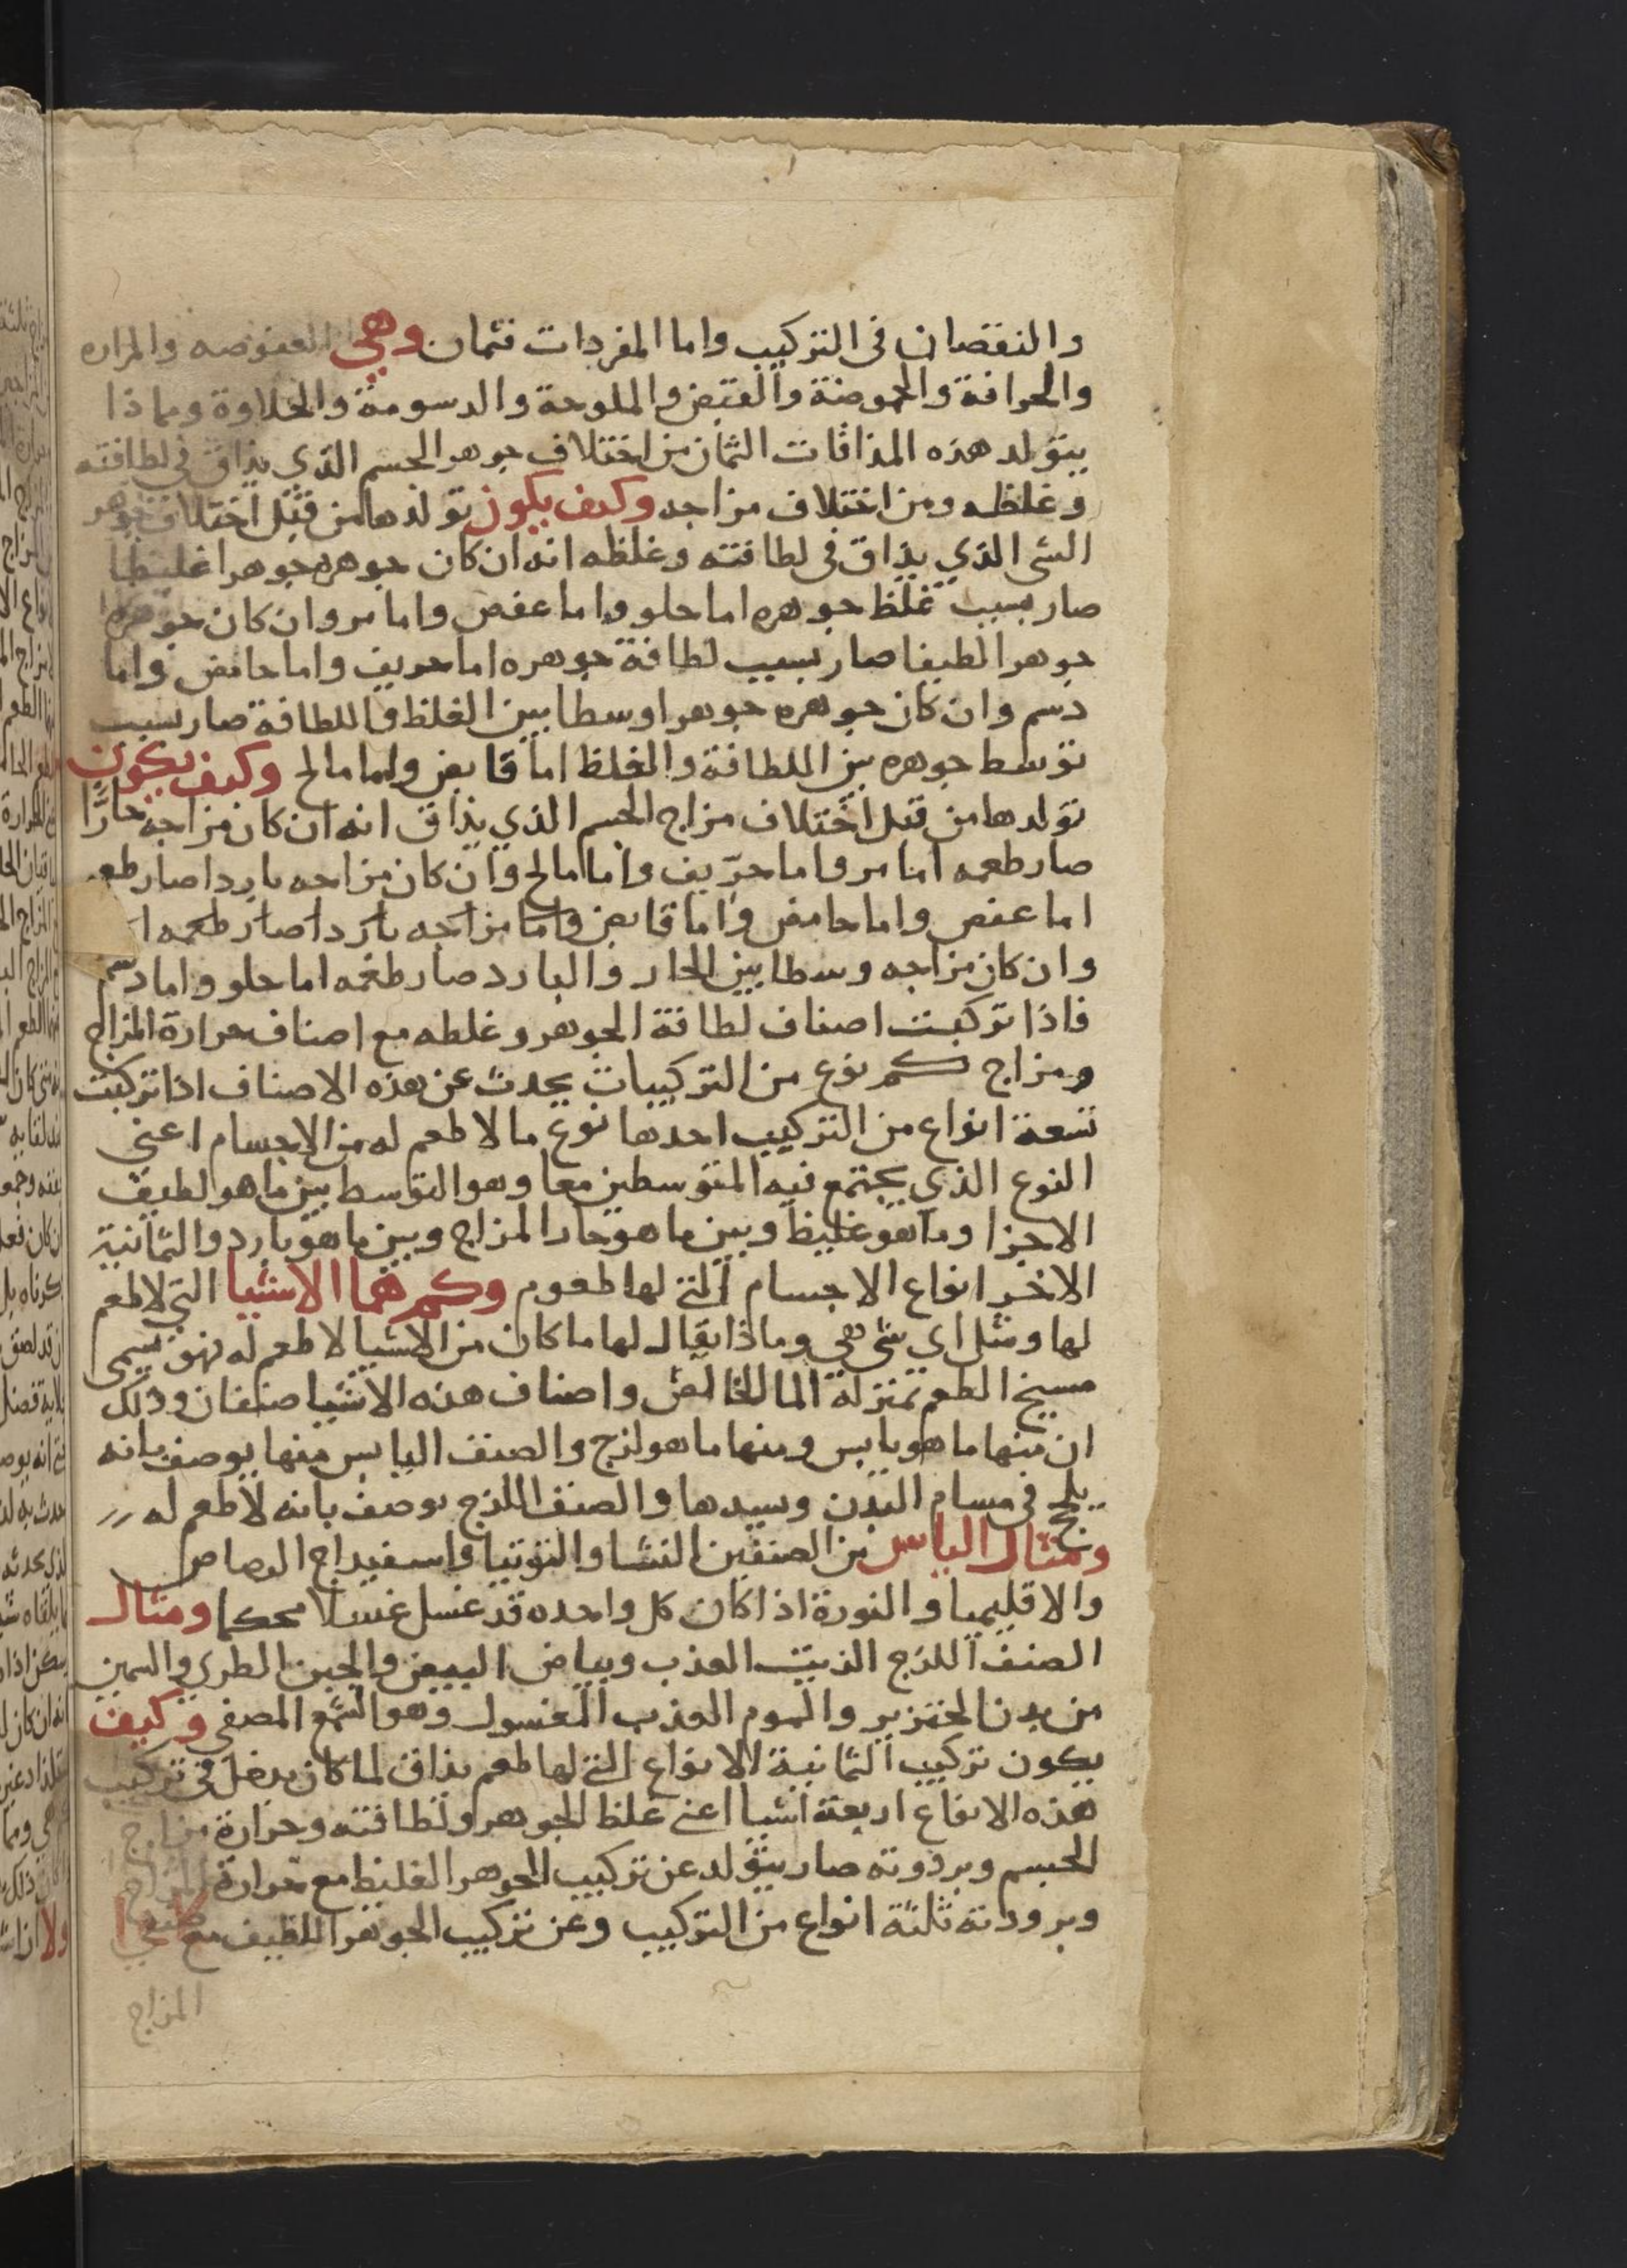 والنقصان فى التركيب واما المفردات فثمان وهي العفوصه والمراره
والحرافة والحموضة والقبض والملوحة والدسومة والحلاوة ومماذا
يتولد هذه المذاقات الثمان من اختلاف جوهر الجسم الذي يذاق في لطافته
وغلظه ومن اختلاف مزاجه وكيف يكون تولدها من قبل اختلاف جوهر
الشى الذي يذاق فى لطافته وغلظه انه ان كان جوهره جوهرا غليظا
صار بسبب غلظ جوهره اما حلو واما عفص واما مر وان كان جوهره
جوهرا لطيفا صار بسبب لطافة جوهره اما حريف واما حامض واما
دسم وان كان جوهره جوهرا وسطا بين الغلظ واللطافة صار بسبب
توسط جوهره بين اللطافة والغلظ اما قابض واما مالح وكيف يكون
تولدها من قبل اختلاف مزاج الجسم الذي يذاق انه ان كان مزاجه حارًا
صار طعمه اما مر واما حرّيف واما مالح وان كان مزاجه باردا صار طعمه
اما عفص واما حامض واما قابض واما مزاجه باردا صار طعمه ا
وان كان مزاجه وسطا بين الحار والبارد صار طعمه اما حلو واما دسم
فاذا تركبت اصناف لطافة الجوهر وغلظه مع اصناف حرارة المزاج
ومزاج كم نوع من التركيبات يحدث عن هذه الاصناف اذا تركبت
تسعة انواع من التركيب احدها نوع ما لا طعم له من الاجسام اعني
النوع الذي يجتمع فيه المتوسطين معا وهو التوسط بين ما هو لطيف
الاجزا وما هو غليظ وبين ما هو حار المزاج وبين ما هو بارد والثمانية
الاخر انواع الاجسام التى لها طعوم وكم هما الاشيا التي لا طعم
لها ومثل اي شى هي وماذا يقال لها ما كان من الاشيا لا طعم له فهو يسمى
مسيخ الطعم بمنزلة الما الخالص واصناف هذه الاشيا صنفان وذلك
ان منها ما هو يابس ومنها ما هو لزج والصنف اليابس منها يوصف بانه
يلحج فى مسام البدن ويسدها والصنف اللزج يوصف بانه لا طعم له
ومثال اليابس من الصنفين النشا والتوتيا واسفيداج الرصاص
والاقليميا والنورة اذا كان كل واحده قد غسل غسلا محكما ومثال
الصنف اللزج الزيت العذب وبياض البيض والجبن الطري والسمين
من بدن الخنزير والموم العذب المغسول وهو الشمع المصفى وكيف
يكون تركيب الثمانية الانواع التى لها طعم يذاق لما كان يدخل في تركيب
هذه الانواع اربعة اشيا اعنى غلظ الجوهر ولطافته وحرارة مزاج
الجسم وبرودته صار يتولد عن تركيب الجوهر الغليظ مع حرارة المزاج
وبرودته ثلثة انواع من التركيب وعن تركيب الجوهر اللطيف مع
المزاج